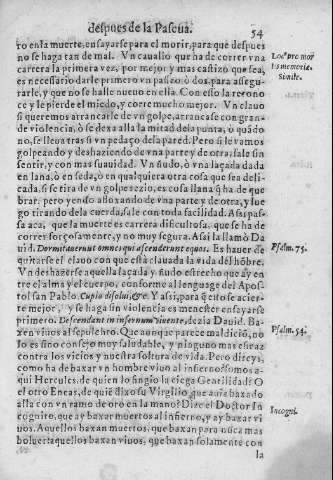 despues de la Pascua.
54
ro en la muerte, ensayarse para el morir, para que despues
no se haga tan de mal. Vn cauallo que ha de correr vna
carrera la primera vez, por mejor y mas castizo que sea,
es necessario darle primero vn passeo o dos, para assegu-
rarle, y que no se halle nueuo en ella. Con esso la recono
ce y le pierde el miedo, y corre mucho mejor. Vn clauo
si queremos arrancarle de vn golpe, arrancase con gran-
de violencia, ò se dexa alla la mitad de la punta, ò quãdo
no, se lleua tras si vn pedaço de la pared. Pero si le vamos
golpeando y deshaziendo de vna parte y de otra, sale sin
sentir, y con mas suauidad. Vn ñudo, ò vna laçada dada
en lana, ò en seda, ò en qualquiera otra cosa que sea deli-
cada, si se tira de vn golpe rezio, es cosa llana q̃ ha de que
brar. pero yendo afloxando de vna parte y de otra, y lue
go tirando de la cuerda, sale con toda facilidad. Assi pas-
sa acà, que la muerte es carrera dificultosa, que se ha de
correr forçosamente, y no muy segura. Assi la llamò Da
uid. Dormitauerunt omnes qui ascenderunt equos. Es hauer de
quitarse el clauo con que està clauada la vida del hõbre.
Vn deshazerse aquella laçada y ñudo estrecho que ay en
tre el alma y el cuerpo, conforme al lenguage del Apos-
tol san Pablo. Cupio disolui, &c. Y assi, para q̃ esto se acier-
te mejor, y se haga sin violencia es menester ensayarse
primero. Descendant in infernum viuente, dezia Dauid. Ba-
xen viuos al sepulchro. Que aunque parece maldiciõ, no
lo es sino consejo muy saludable, y ninguno mas eficaz
contra los vicios y nuestra soltura de vida. Pero direys,
como ha de baxar vn hombre viuo al infierno? somos a-
qui Hercules, de quien lo fingio la ciega Gentilidad? O
el otro Eneas, de quiẽ dixo su Virgilio, que auia baxado
alla con vn ramo de oro en la mano? Dize el Doctor In
cognito, que ay baxar muertos al infierno, y ay baxar vi
uos. Aquellos baxan muertos, que baxan para nunca mas
boluer: aquellos baxan viuos, que baxan solamente con
la
Psalm. 75.
Psalm. 54.
Incogni.